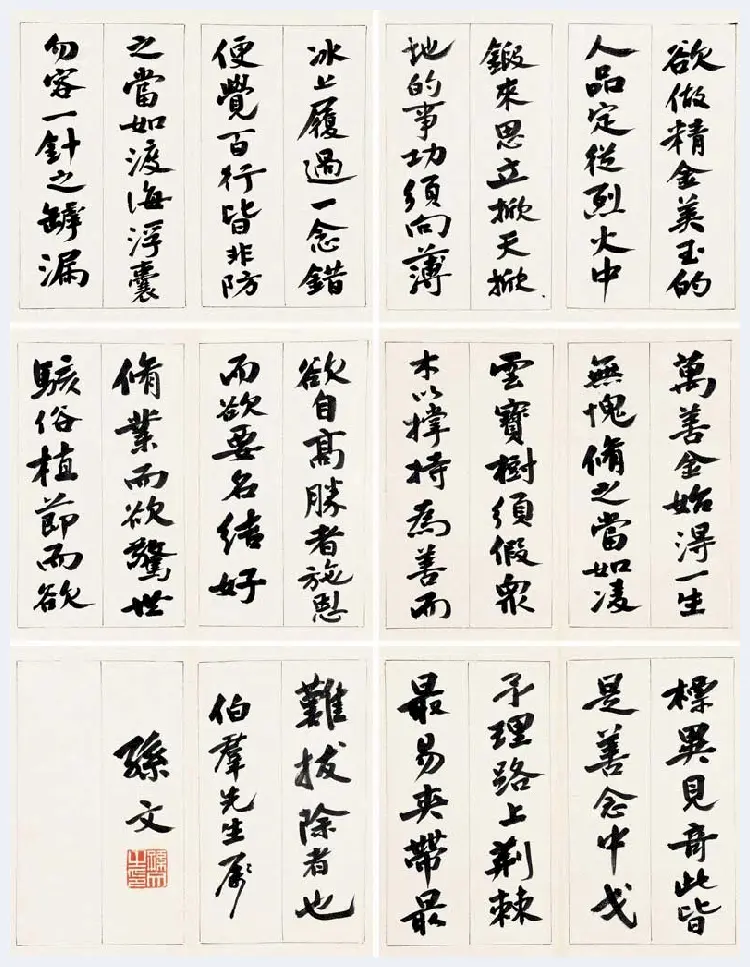 欲做精金美玉的
人品定從烈火中
鍛來思立掀天掀
地的事功須向薄
冰上履過一念錯
便覺百行皆非防
之當如渡海浮囊
勿容一針之罅漏
萬善全始得一生
無愧脩之當如凌
雲寶樹須假眾
木以撐持為善而
欲自高勝者施恩
而欲要名結好
脩業而欲驚世
駭俗植節而欲
標異見奇此皆
是善念中戈
矛理路上荆棘
最易夾帶最
難拔除者也
伯羣先生屬
孫文
孫文之印